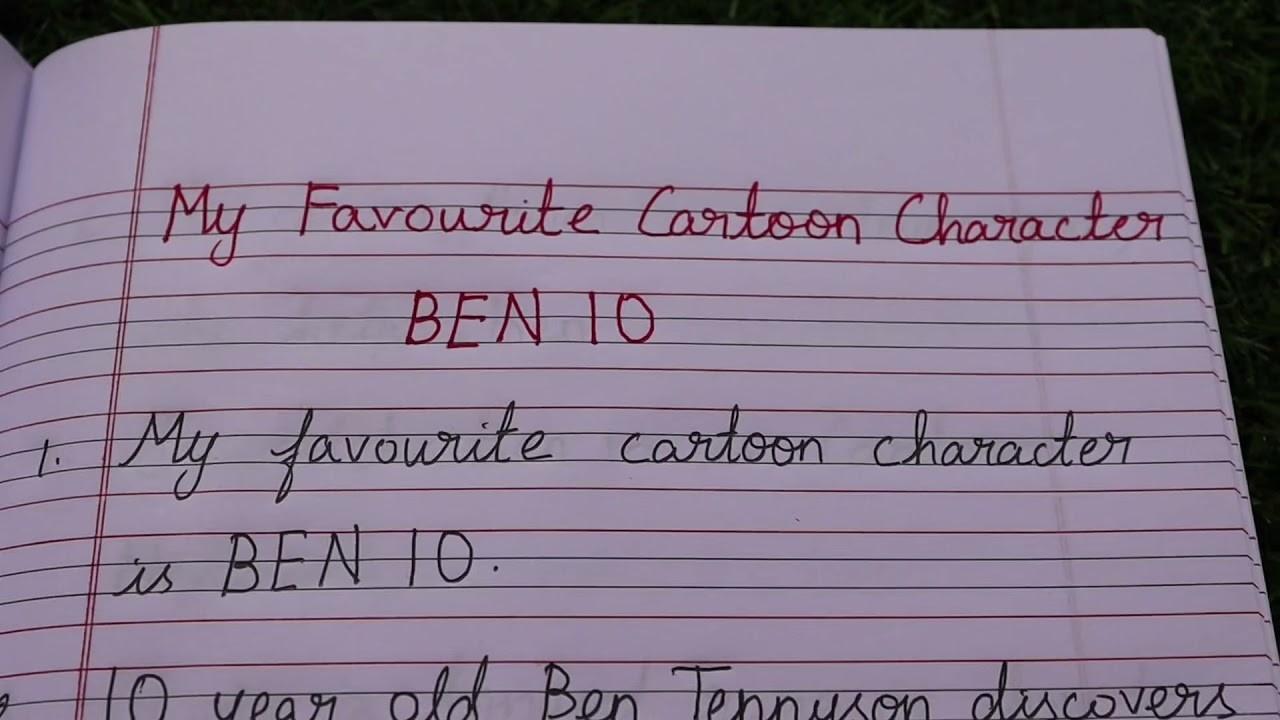 My Favourite Cartoon Character
BEN 10
1. My favourite cartoon character
is BEN 10.
10 year old Ben Tennyson discovers